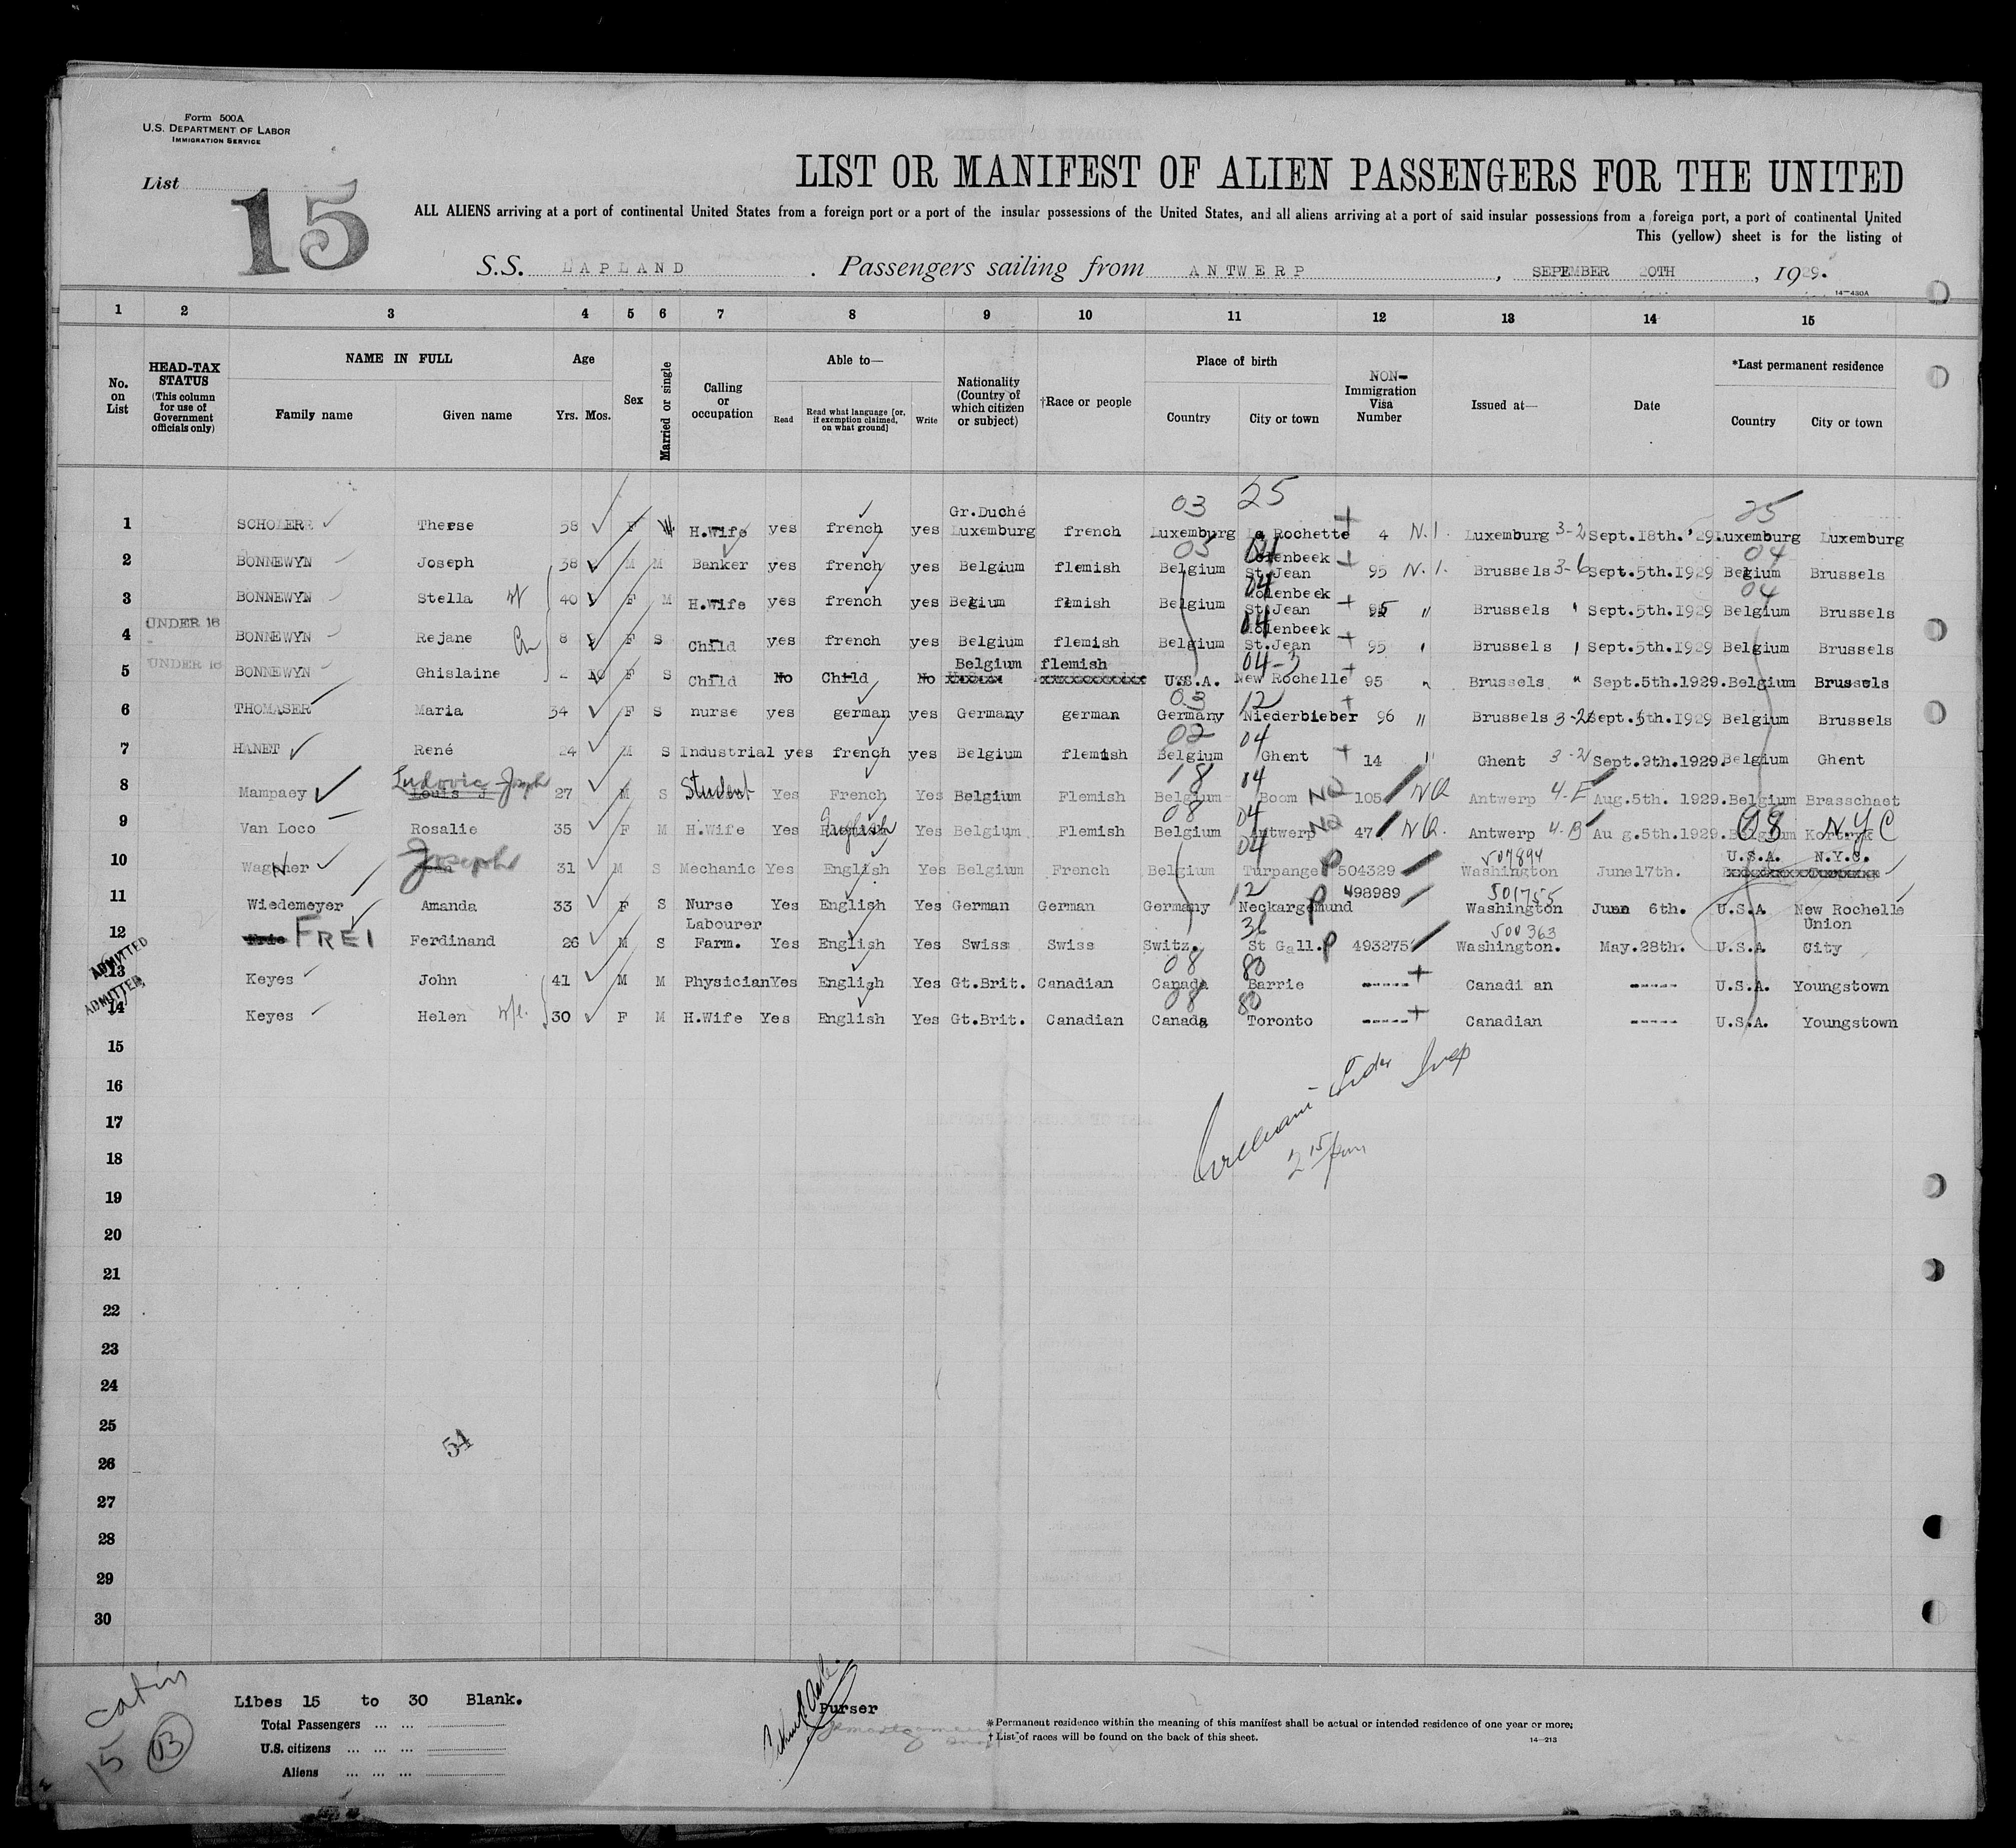 Form 500A
U.S. DEPARTMENT OF LABOR
IMMIGRATION SERVICE
List
15
LIST OR MANIFEST OF ALIEN PASSENGERS FOR THE UNITED
ALL ALIENS arriving at a port of continental United States from a foreign port or a port of the insular possessions of the United States, and all aliens arriving at a port of said insular possessions from a foreign port, a port of continental United
This (yellow) sheet is for the listing of
S.S. LAPLAND . Passengers sailing from ANTWERP , SEPEMBER 20TH , 1929.
14—430A
1 2 3 4 5 6 7 8 9 10 11 12 13 14 15
No. on List
HEAD-TAX STATUS (This column for use of Government officials only)
NAME IN FULL
Family name Given name
Age
Yrs. Mos.
Sex
Married or single
Calling or occupation
Able to—
Read Read what language [or, if exemption claimed, on what ground] Write
Nationality (Country of which citizen or subject)
†Race or people
Place of birth
Country City or town
NON- Immigration Visa Number
Issued at—
Date
*Last permanent residence
Country City or town
03 25 25
1 SCHOLERE Therse 58 F H.Wife yes french yes Gr.Duché Luxemburg french Luxemburg La Rochette 4 N.I. Luxemburg 3-2 Sept.18th.'29 Luxemburg Luxemburg
05 04 04
2 BONNEWYN Joseph 38 M M Banker yes french yes Belgium flemish Belgium Molenbeek St.Jean 95 N.I. Brussels 3-6 Sept.5th.1929 Begium Brussels
04 04
3 BONNEWYN Stella wf 40 F M H.Wife yes french yes Begium flmish Belgium Molenbeek St.Jean 95 " Brussels " Sept.5th.1929 Belgium Brussels
UNDER 16
04
4 BONNEWYN Rejane Ch 8 F S Child yes french yes Belgium flemish Belgium Molenbeek St.Jean 95 " Brussels " Sept.5th.1929 Belgium Brussels
UNDER 16
04-3
5 BONNEWYN Ghislaine 10 F S Child No Child No Belgium flemish U.S.A. New Rochelle 95 " Brussels " Sept.5th.1929. Belgium Brussels
03 12
6 THOMASER Maria 34 F S nurse yes german yes Germany german Germany Niederbieber 96 " Brussels 3-2 Sept.5th.1929 Belgium Brussels
02 04
7 HANET René 24 M S Industrial yes french yes Belgium flemish Belgium Ghent 14 " Ghent 3-2 Sept.9th.1929. Belgium Ghent
18 04
8 Mampaey Louis J Ludovic Joseph 27 M S Student Yes French Yes Belgium Flemish Belgium Boom NQ 105 NQ Antwerp 4-E Aug.5th. 1929. Belgium Brasschaet
08 04
9 Van Loco Rosalie 35 F M H.Wife Yes English Yes Belgium Flemish Belgium Antwerp NQ 47 NQ. Antwerp 4-B Au g.5th.1929. Belgium 08 N.Y.C
04 507894
10 Wagner Joseph 31 M S Mechanic Yes English Yes Belgium French Belgium Turpange P 504329 Washington June17th. U.S.A. N.Y.C.
12 501755
11 Wiedemeyer Amanda 33 F S Nurse Yes English Yes German German Germany Neckargemund P 498989 Washington June 6th. U.S.A New Rochelle
36 500363
12 Frie FREI Ferdinand 26 M S Labourer Farm. Yes English Yes Swiss Swiss Switz. St Gall. P 493275 Washington. May.28th. U.S.A Union City
ADMITTED
08 80
13 Keyes John 41 M M Physician Yes English Yes Gt.Brit. Canadian Canada Barrie ----- Canadi an ----- U.S.A. Youngstown
ADMITTED
08 80
14 Keyes Helen wf. 30 F M H.Wife Yes English Yes Gt.Brit. Canadian Canada Toronto ----- Canadian ----- U.S.A. Youngstown
15
16
17
18
2 15 pm
19
20
21
22
23
24
25
54
26
27
28
29
30
Cabin
15
03
Libes 15 to 30 Blank.
Total Passengers ... ...
U.S. citizens ... ... ...
Aliens ... ... ...
Purser
*Permanent residence within the meaning of this manifest shall be actual or intended residence of one year or more;
† List of races will be found on the back of this sheet.
14—213